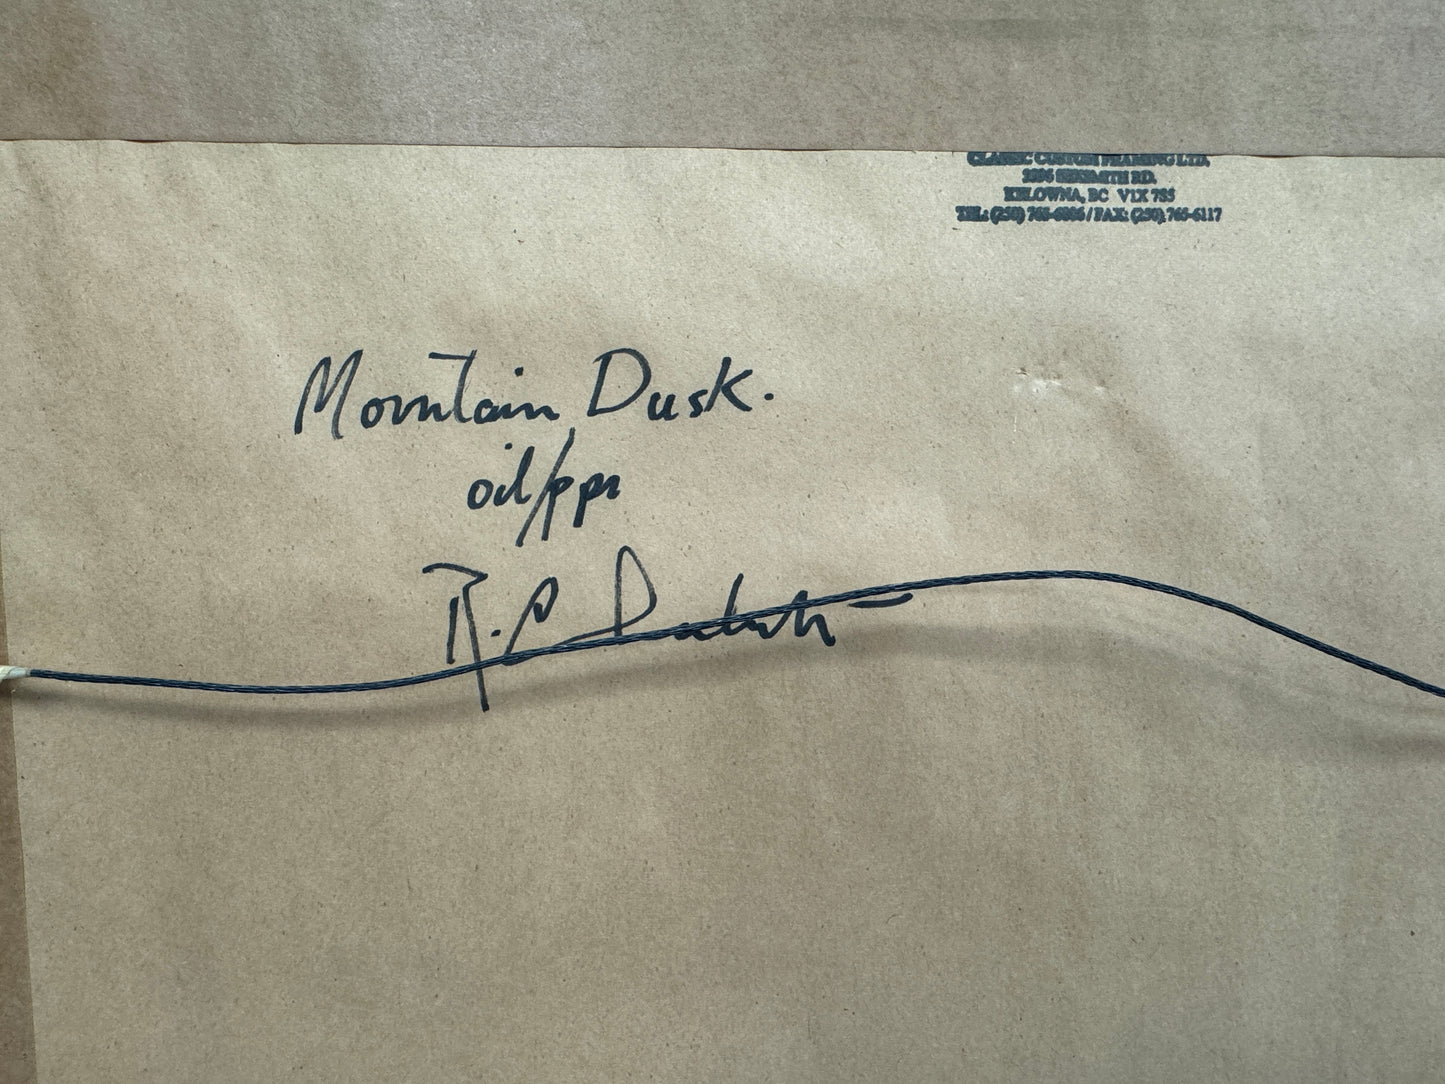 CLASSIC CUSTOM FRAMING LTD.
SEXSMITH RD.
KELOWNA, BC V1X 7S5
TEL: (250) / FAX: (250) 765-6117
Mountain Dusk.
oil/ppr
R.C.